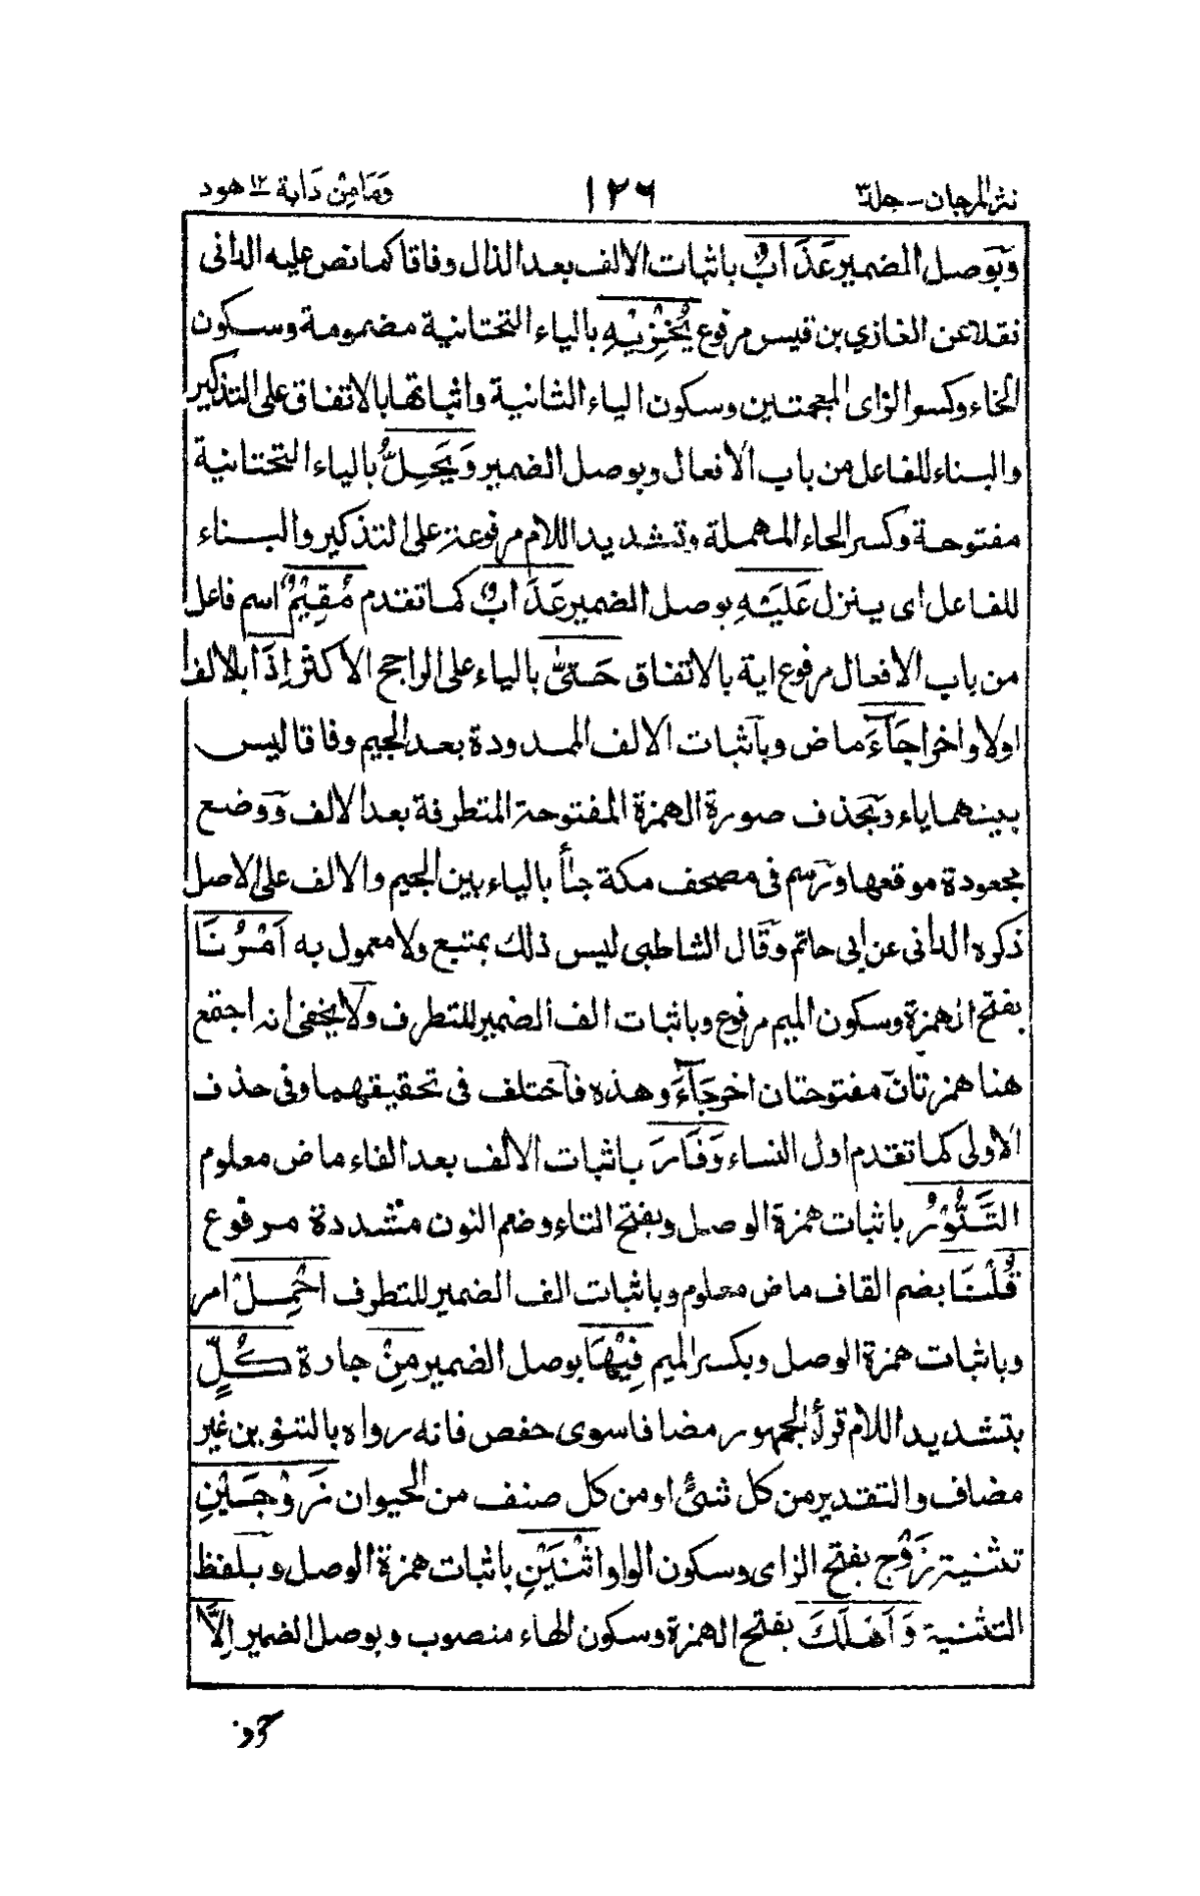 نثر المرجان - جلد ۳
۱۲۶
وَمَا مِنْ دَابة ۱۲ هود
وَبوصل الضمير عَذَابٌ باثبات الالف بعد الذال وفاقا كما نص عليه الدانى
نقلا عن الغازي بن قيس مرفوع يُخْزِيْهِ بالياء التحتانية مضمومة وسكون
الخاء وكسر الزاى المعجمتين وسكون الياء الثانية واثباتها بالاتفاق على التذكير
والبناء للفاعل من باب الافعال وبوصل الضمير وَيَحِلُّ بالياء التحتانية
مفتوحة وكسر الحاء المهملة وتشديد اللام مرفوعة على التذكير والبناء
للفاعل اى ينزل عَلَيْهِ بوصل الضمير عَذَابٌ كما تقدم مُقِيْمٌ اسم فاعل
من باب الافعال مرفوع اية بالاتفاق حَتّٰى بالياء على الراجح الاكثر اِذَا بالالف
اولا واخرا جَآءَ ماض وبآثبات الالف الممدودة بعد الجيم وفاقا ليس
بينهما ياء وبحذف صورة الهمزة المفتوحة المتطرفة بعد الالف وَوضع
مجعودة موقعها وترسم فى مصحف مكة جيأ بالياء بين الجيم والالف على الاصل
ذكره الدانى عن ابى حاتم وقال الشاطبى ليس ذلك بمتبع ولا معمول به اَمْرُنَا
بفتح الهمزة وسكون الميم مرفوع وباثبات الف الضمير للتطرف ولا يخفى انه اجتمع
هنا همزتان مفتوحتان اخر جَآءَ وهذه فآختلف فى تحقيقهما وفى حذف
الاولى كما تقدم اول النساء وَفَارَ باثبات الالف بعد الفاء ماض معلوم
التَّنُّوْرُ باثبات همزة الوصل وبفتح التاء وضم النون مشددة مرفوع
قُلْنَا بضم القاف ماض معلوم وباثبات الف الضمير للتطرف احْمِلْ امر
وباثبات همزة الوصل وبكسر الميم فِيْهَا بوصل الضمير مِنْ جارة كُلٍّ
بتشديد اللام قرأ الجمهور مضافا سوى حفص فانه رواه بالتنوين غير
مضاف والتقدير من كل شئ او من كل صنف من الحيوان زَوْجَيْنِ
تثنية زَوْج بفتح الزاى وسكون الواو اثْنَيْنِ باثبات همزة الوصل وبلفظ
التثنية وَاَهْلَكَ بفتح الهمزة وسكون الهاء منصوب وبوصل الضمير اِلَّا